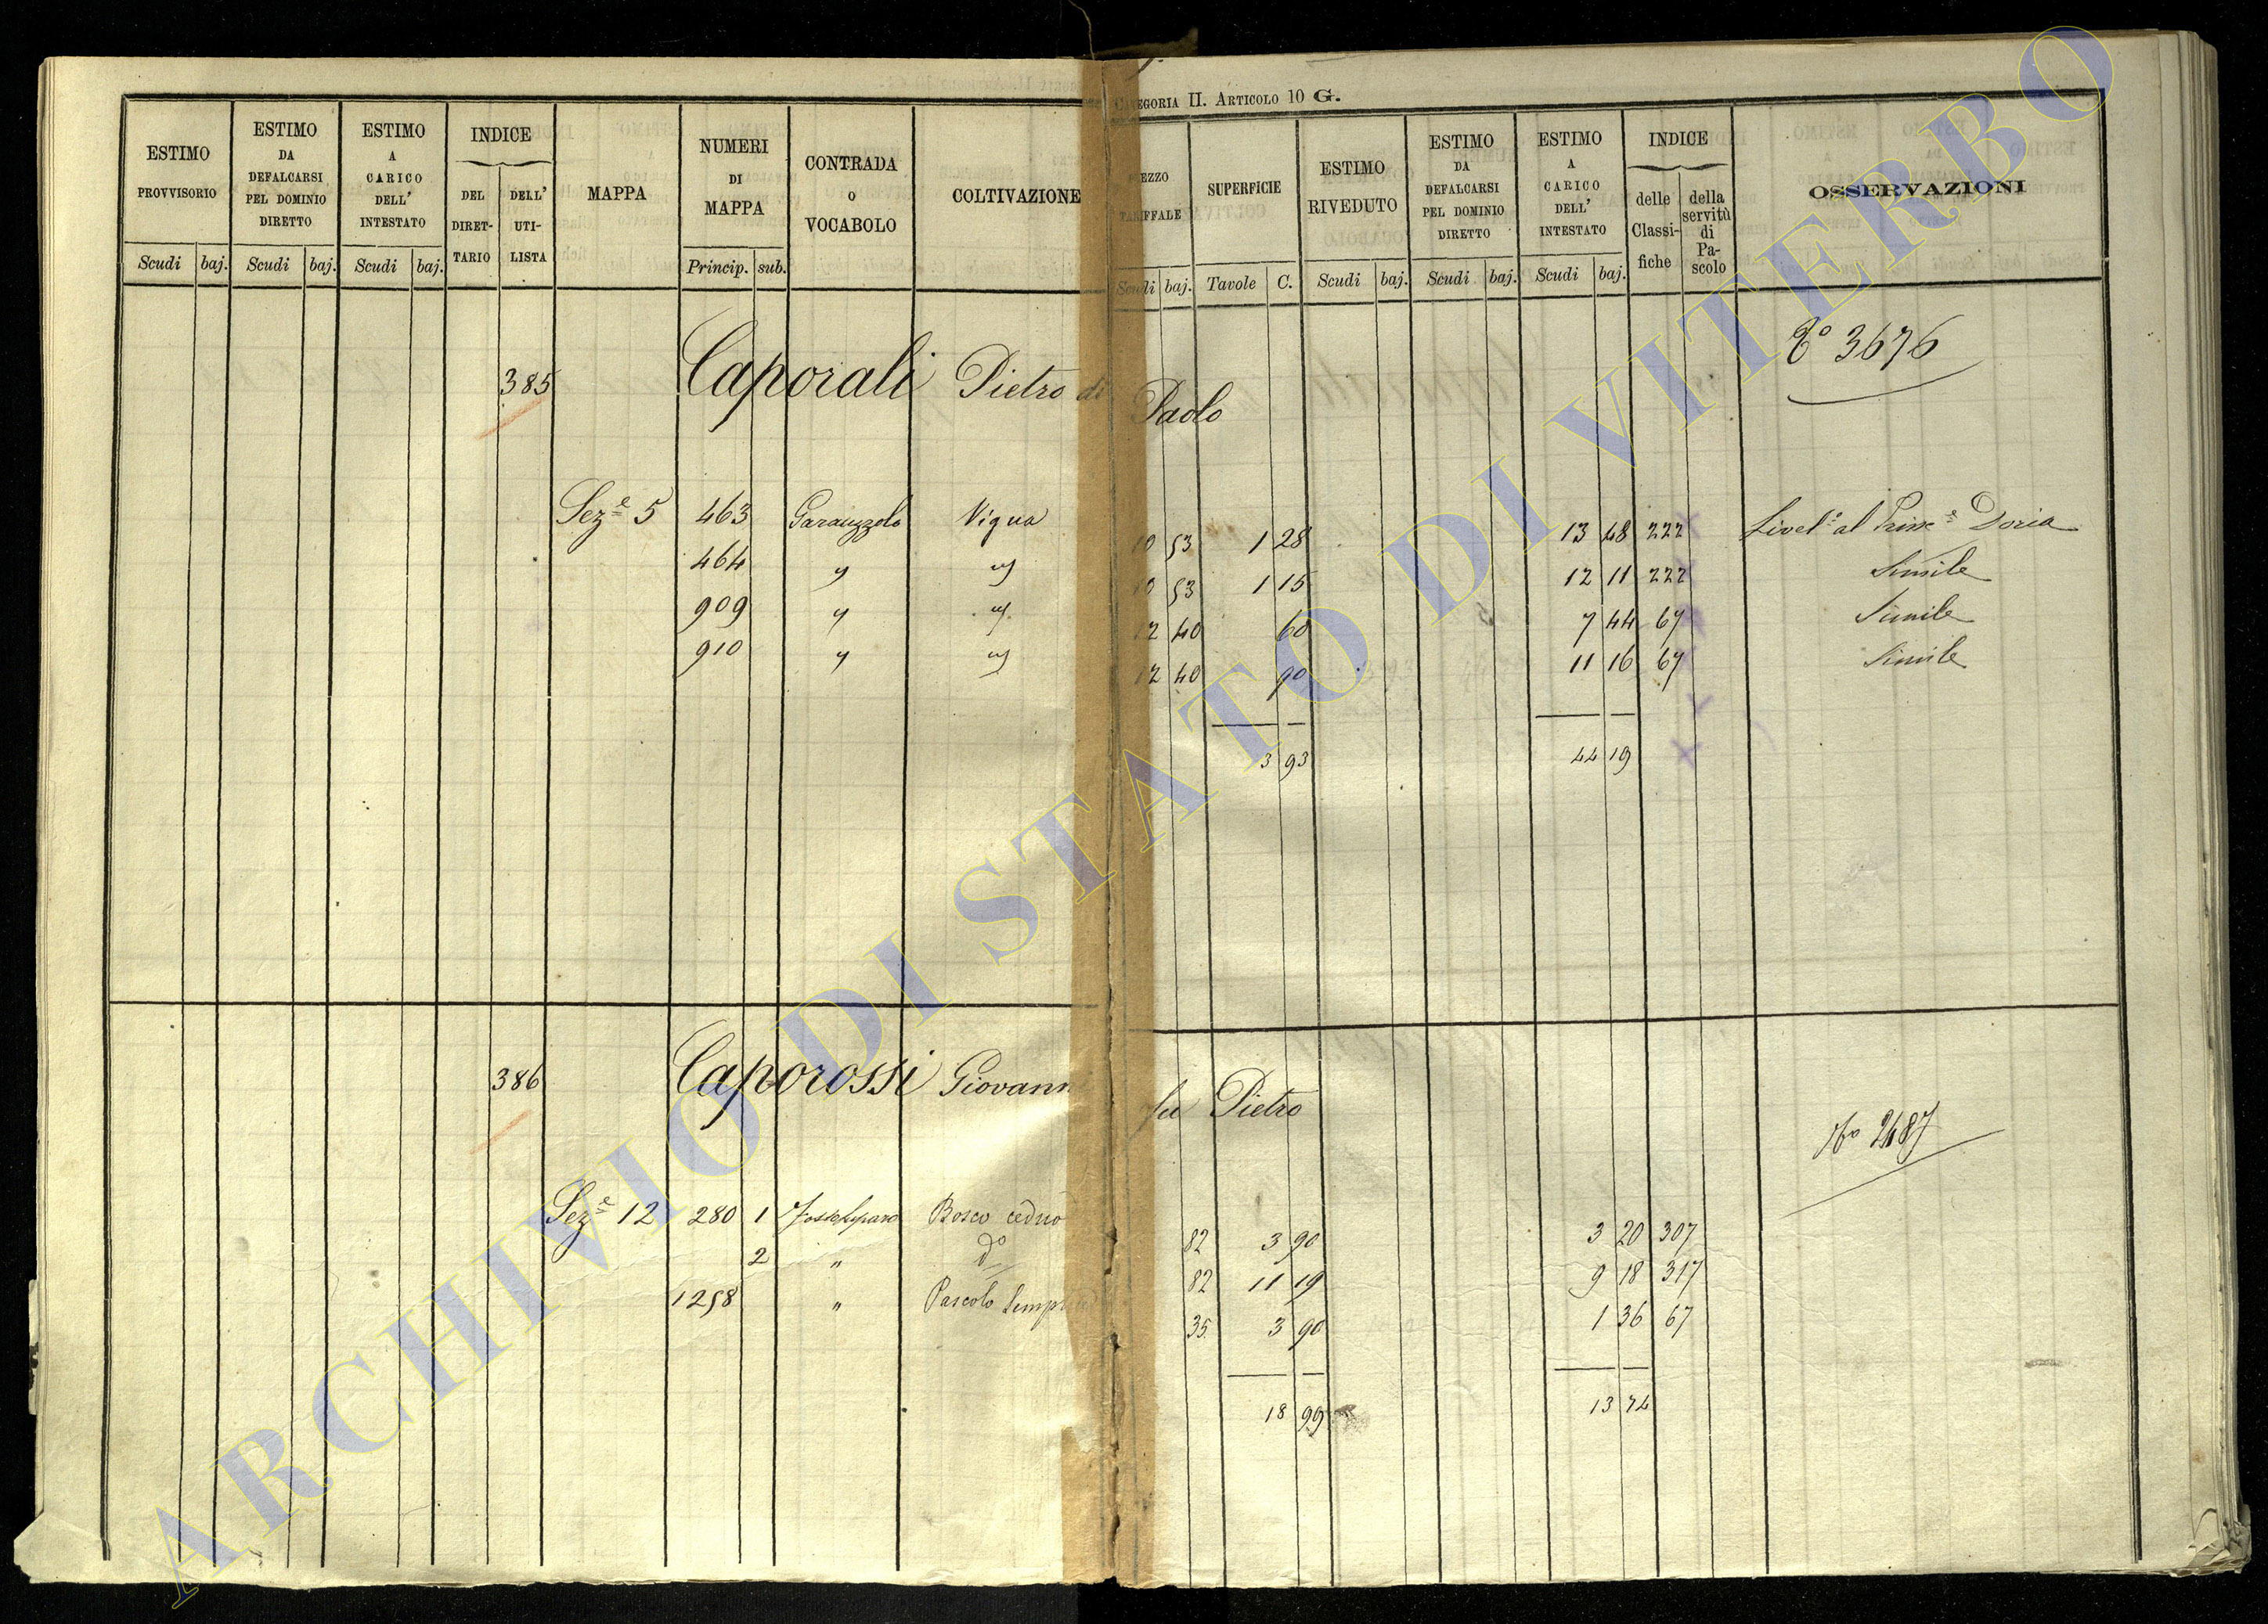 CATEGORIA II. ARTICOLO 10 G.
ESTIMO PROVVISORIO Scudi baj.
ESTIMO DA DEFALCARSI PEL DOMINIO DIRETTO Scudi baj.
ESTIMO A CARICO DELL' INTESTATO Scudi baj.
INDICE DEL DIRET-TARIO DELL' UTI-LISTA
MAPPA
NUMERI DI MAPPA Princip. sub.
CONTRADA O VOCABOLO
COLTIVAZIONE
PREZZO TARIFFALE Scudi baj.
SUPERFICIE Tavole C.
ESTIMO RIVEDUTO Scudi baj.
ESTIMO DA DEFALCARSI PEL DOMINIO DIRETTO Scudi baj.
ESTIMO A CARICO DELL' INTESTATO Scudi baj.
INDICE delle Classi-fiche della servitù di Pa-scolo
OSSERVAZIONI
385 Caporali Pietro di Paolo
3676
Sez.e 5 463 Vigna 10 53 1 28 13 48 222 Livel.o al Doria
464 " " 10 53 1 15 12 11 222 Simile
909 " " 12 40 60 7 44 67 Simile
910 " " 12 40 90 11 16 67 Simile
3 93 44 19
386 Caporossi Giovanni fu Pietro
Sez.e 12 280 1 Bosco ceduo 82 3 90 3 20 307
2 " do 82 11 19 9 18 317
1258 " Pascolo 35 3 90 1 36 67
18 99 13 74
ARCHIVIO DI STATO DI VITERBO